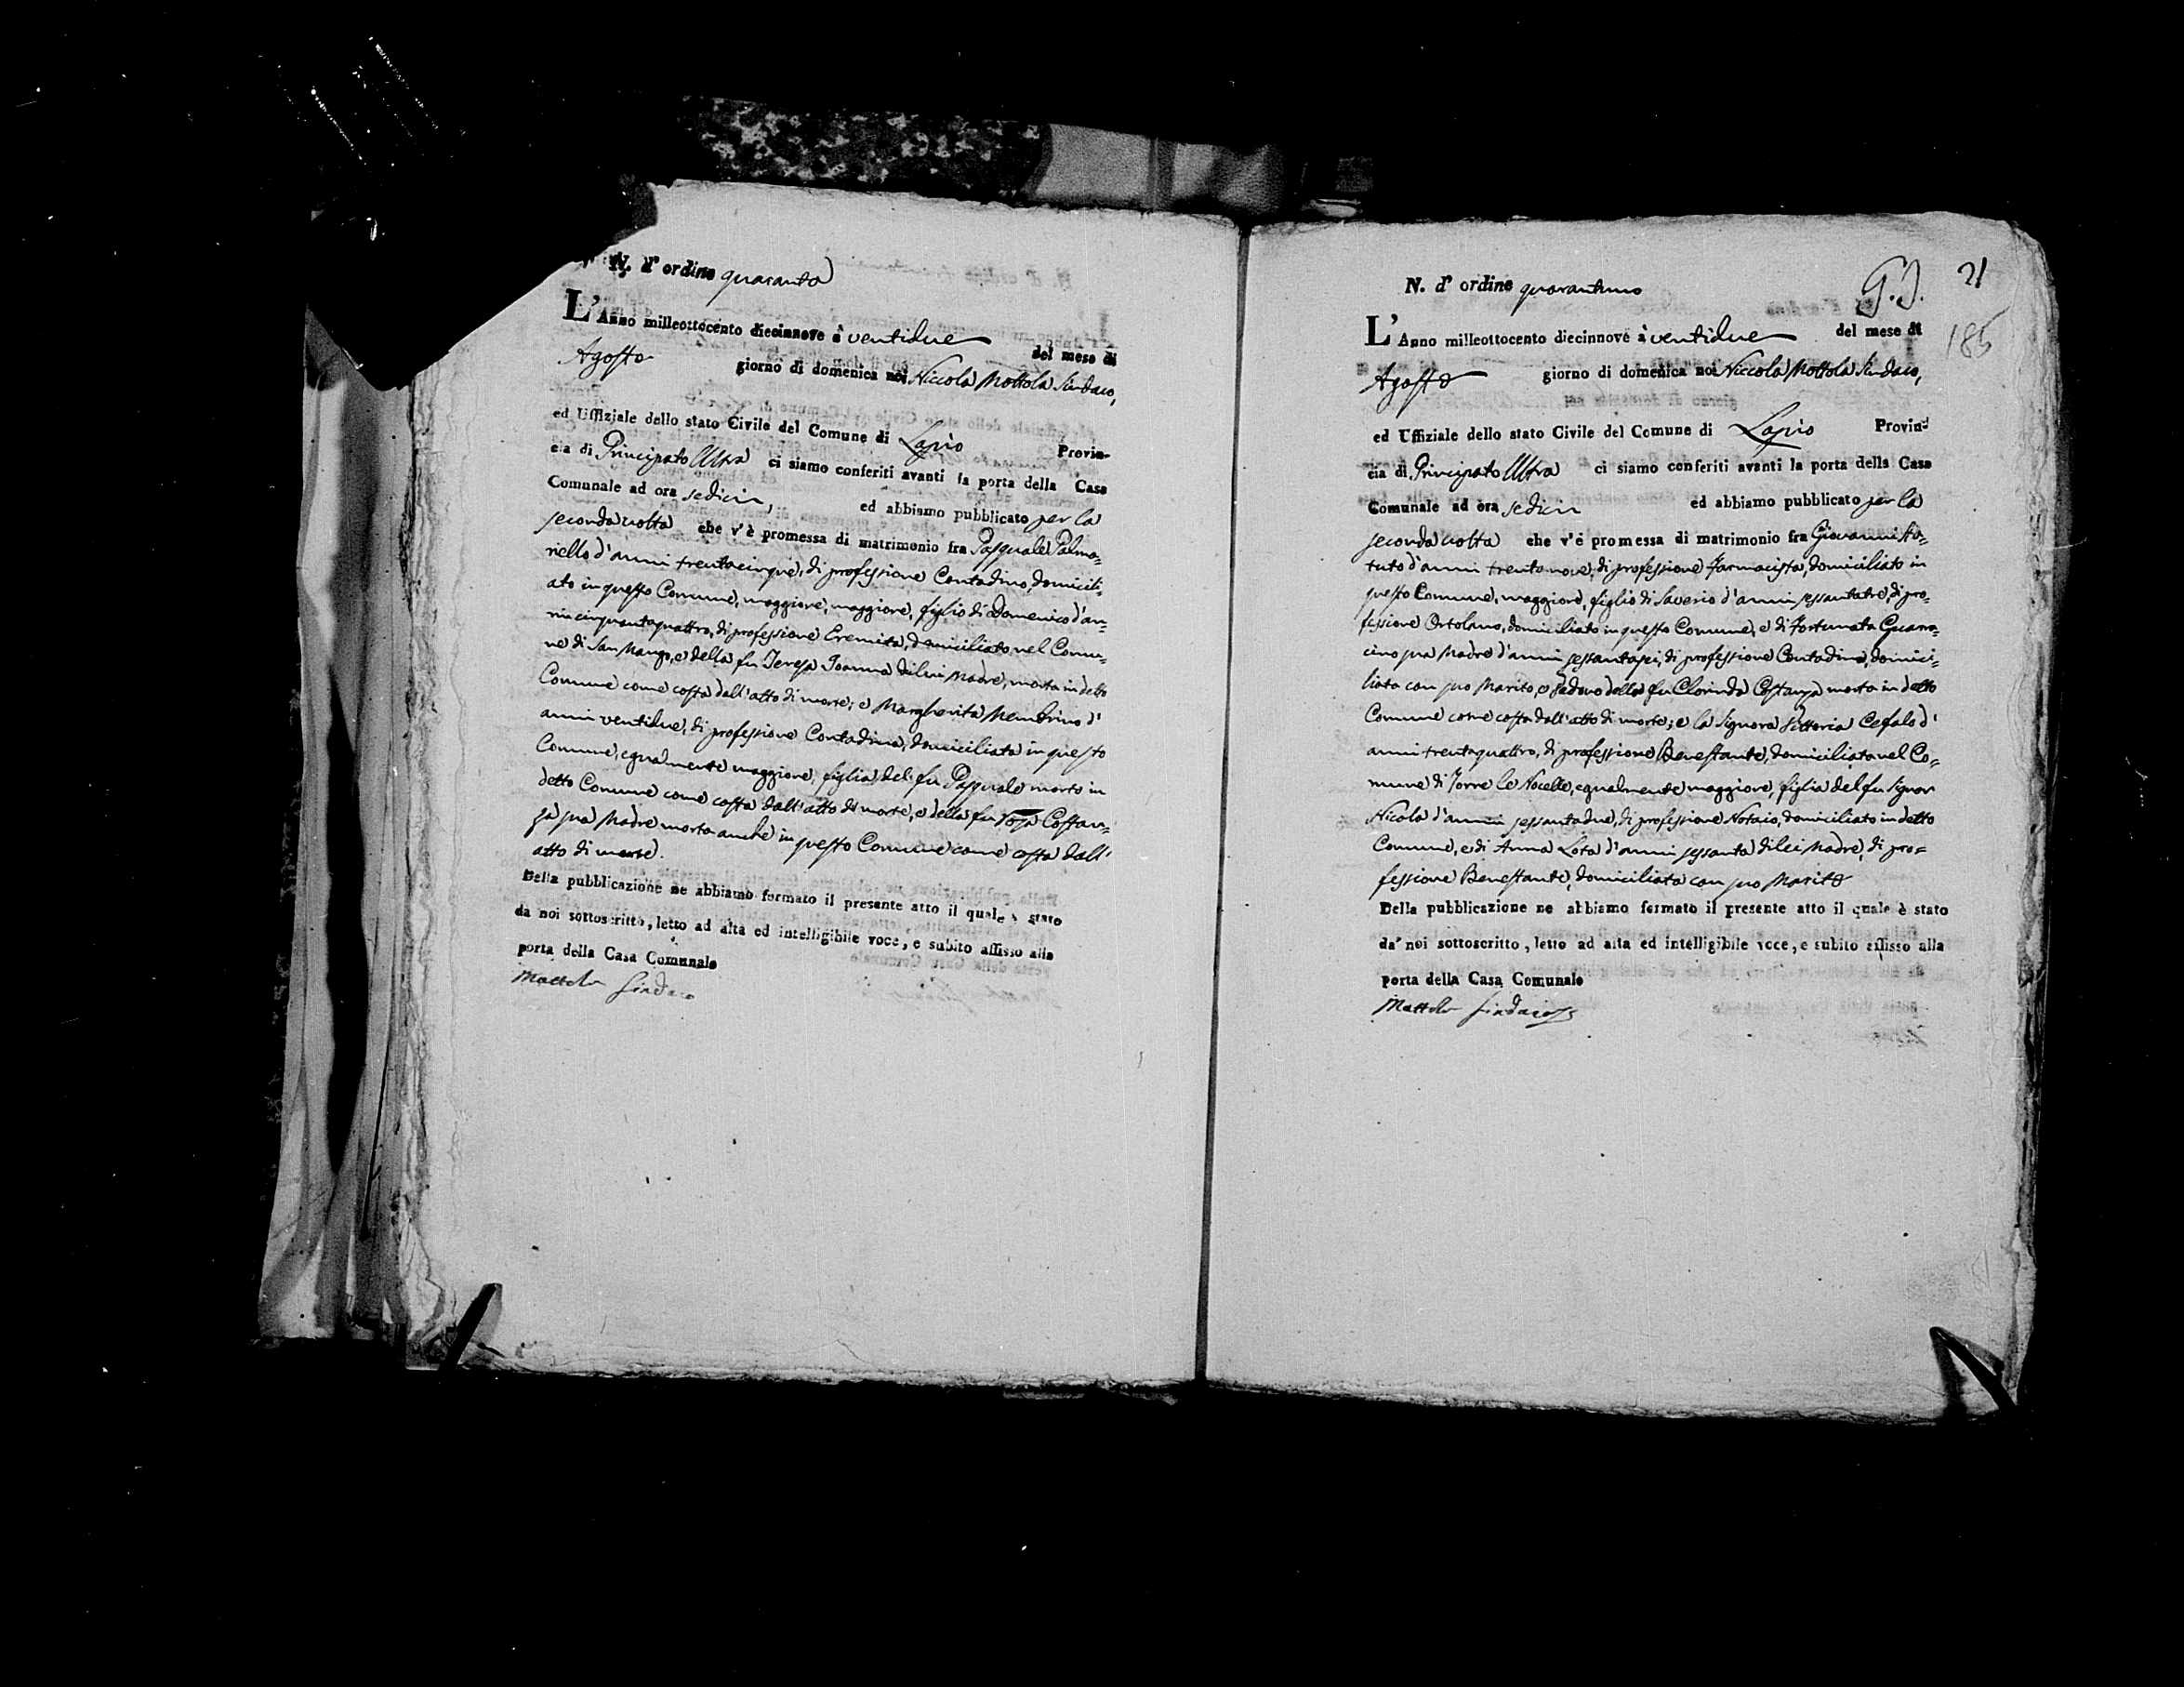 N. d'ordine quaranta
L'Anno milleottocento diecinnove à ventidue del mese di
Agosto giorno di domenica noi Niccola Mottola Sindaco,
ed Uffiziale dello stato Civile del Comune di Lapio Provin-
cia di Principato Ultra ci siamo conferiti avanti la porta della Casa
Comunale ad ora sedici, ed abbiamo pubblicato per la
seconda volta che v'è promessa di matrimonio fra Pasquale Palma=
riello d'anni trentacinque, di professione Contadino, domicili=
ato in questo Comune, maggiore, maggiore, figlio di Domenico d'an=
ni cinquantaquattro, di professione Eremita, domiciliato nel Comu=
ne di San Mango, e della fu Teresa Ioanna di lui Madre, morta in detto
Comune come costa dall'atto di morte; e Margherita d'
anni ventidue, di professione Contadina, domiciliata in questo
Comune, egualmente maggiore, figlia del fu Pasquale morto in
detto Comune come costa dall'atto di morte, e della fu Rosa Costan=
za sua Madre morta anche in questo Comune come costa dall'
atto di morte.
Della pubblicazione ne abbiamo formato il presente atto il quale è stato
da noi sottoscritto, letto ad alta ed intelligibile voce, e subito affisso alla
porta della Casa Comunale
Mottola Sindaco
21
185
N. d'ordine quarantuno
L'Anno milleottocento diecinnove à ventidue del mese di
Agosto giorno di domenica noi Niccola Mottola Sindaco,
ed Uffiziale dello stato Civile del Comune di Lapio Provin-
cia di Principato Ultra ci siamo conferiti avanti la porta della Casa
Comunale ad ora sedici ed abbiamo pubblicato per la
seconda volta che v'è promessa di matrimonio fra Giovanni Sta=
tuto d'anni trentanove, di professione Farmacista, domiciliato in
questo Comune, maggiore, figlio di Saverio d'anni sessantatre, di pro=
fessione Ortolano, domiciliato in questo Comune, e di Fortunata Guara=
cino sua Madre d'anni sessantasei, di professione Contadina, domici=
liata con suo Marito, e vedovo della fu Clorinda Costanza morta in detto
Comune come costa dall'atto di morte; e la Signora Vittoria Cefalo d'
anni trentaquattro, di professione Benestante, domiciliata nel Co=
mune di Torre le Nocelle, egualmente maggiore, figlia del fu Signor
Nicola d'anni sessantadue, di professione Notaio, domiciliato in detto
Comune, e di Anna Lota d'anni sessanta di lei Madre, di pro=
fessione Benestante, domiciliata con suo Marito
Della pubblicazione ne abbiamo formato il presente atto il quale è stato
da noi sottoscritto, letto ad alta ed intelligibile voce, e subito affisso alla
porta della Casa Comunale
Mottola Sindaco